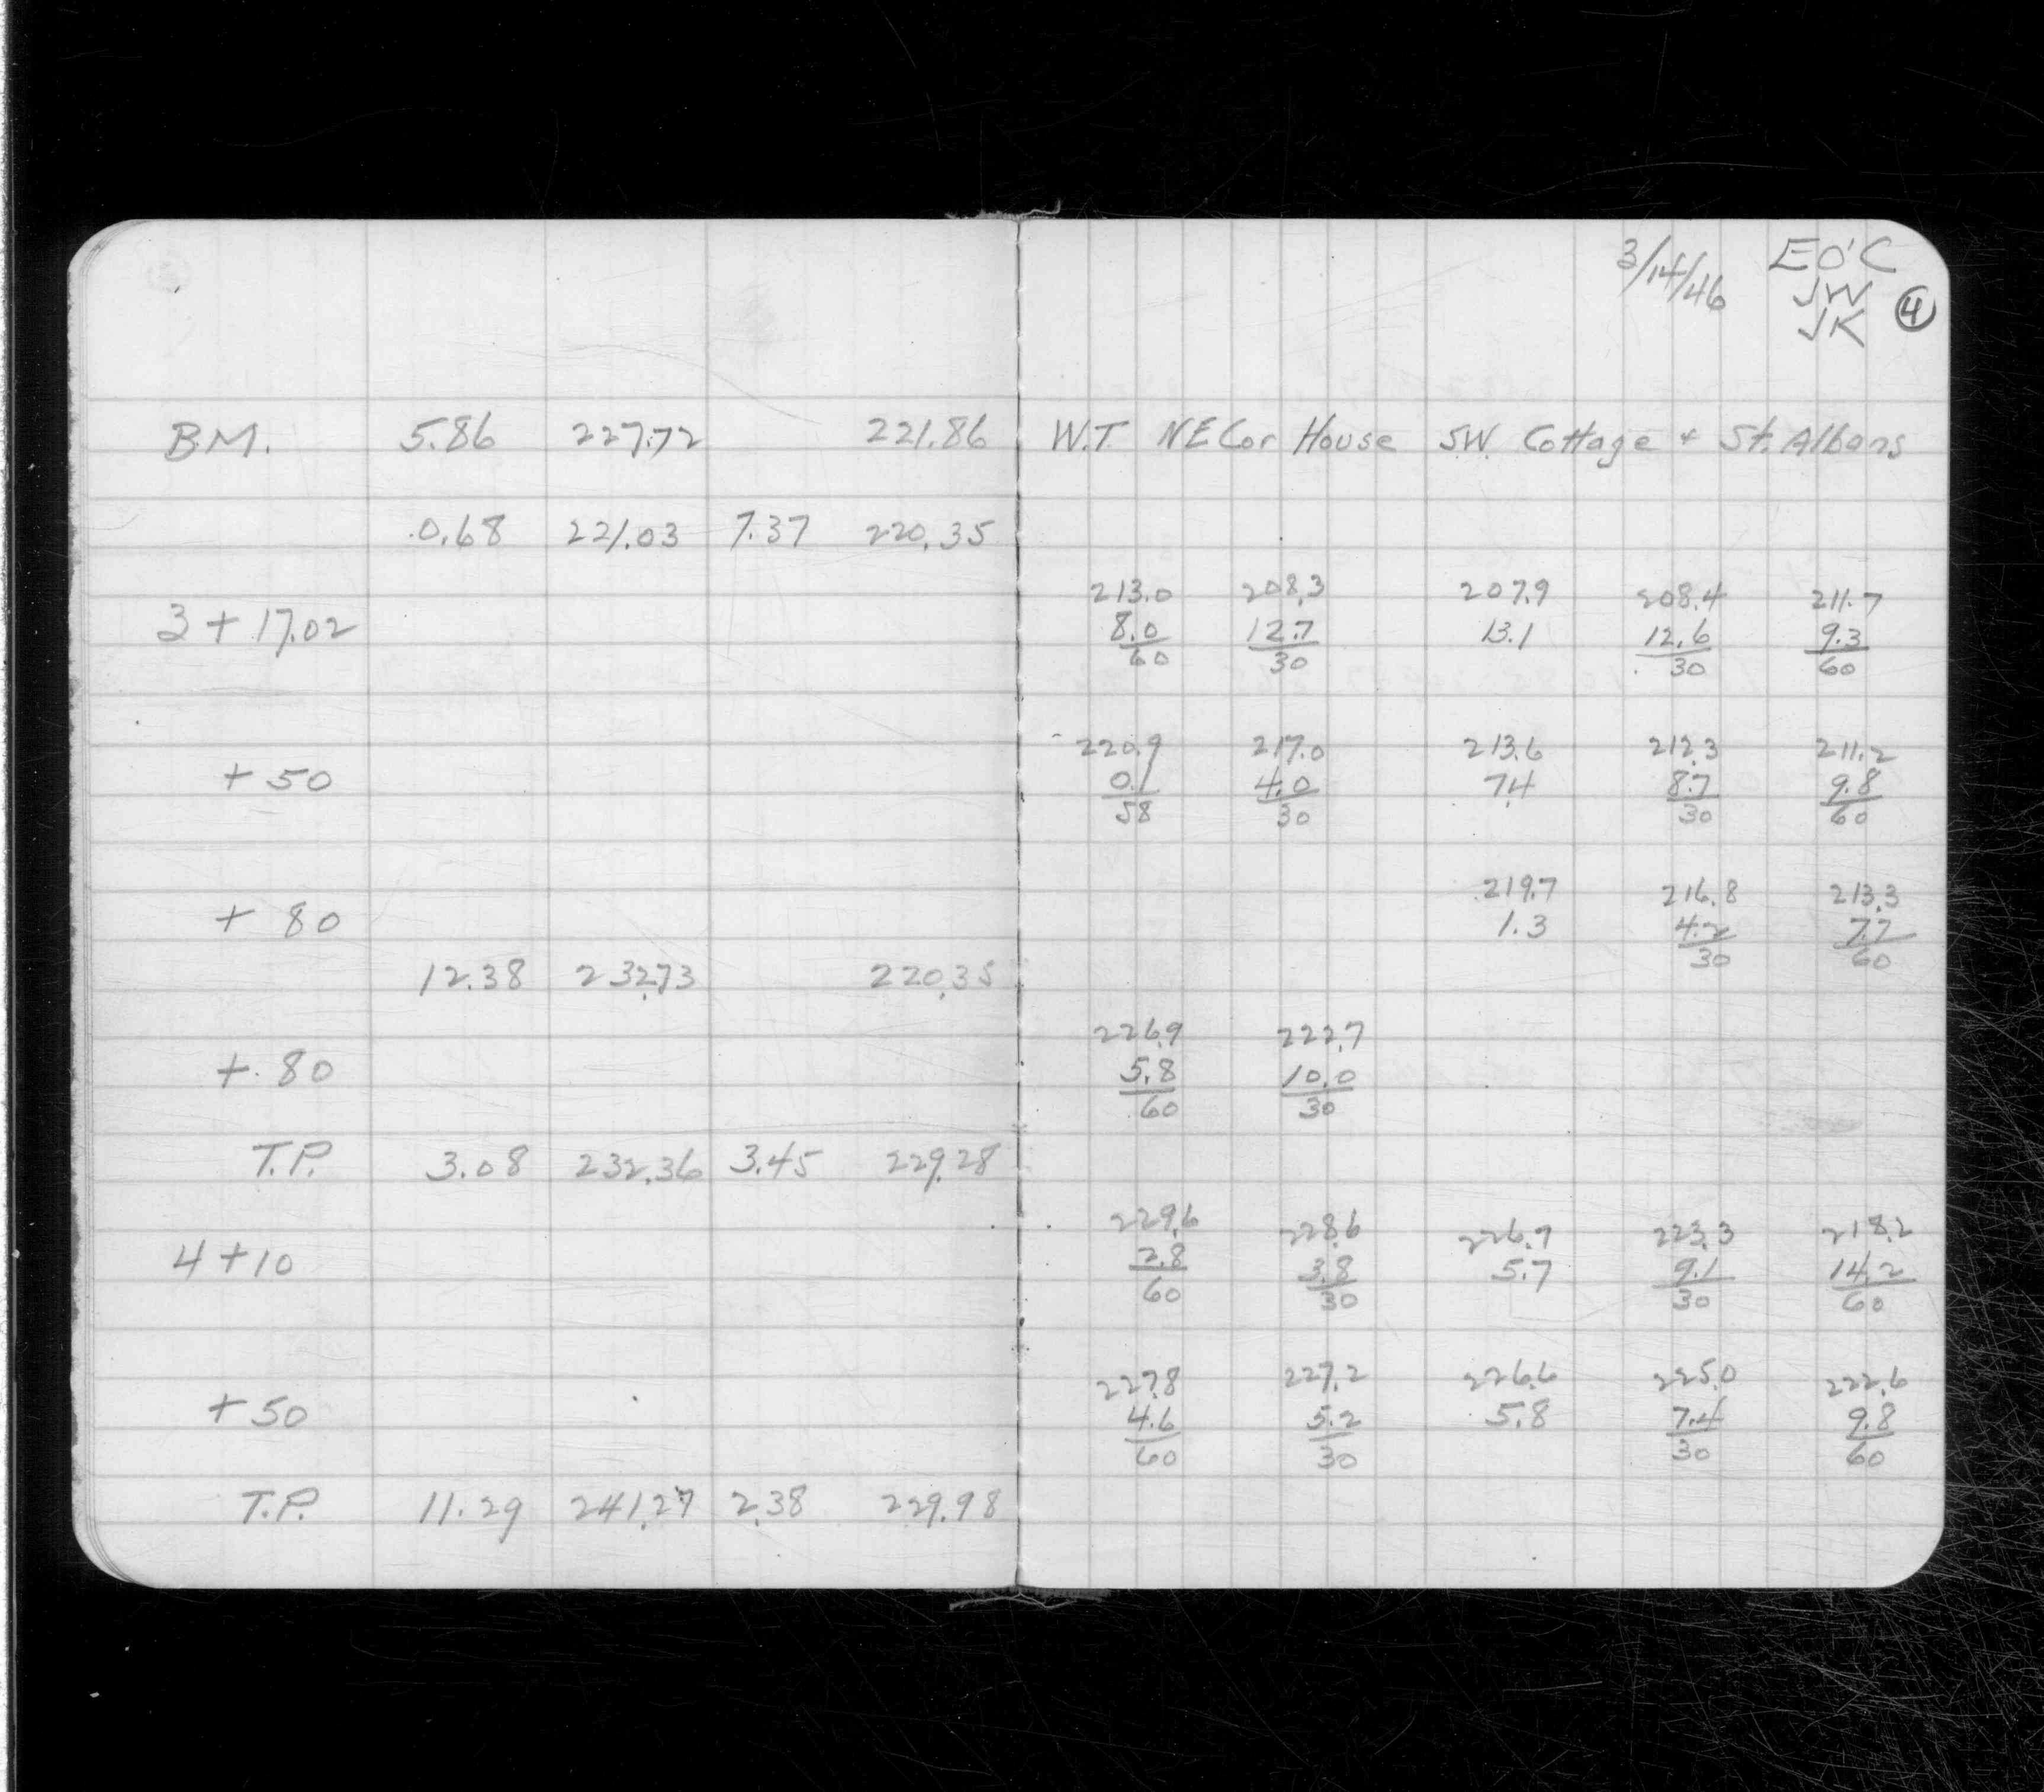 3/14/46 EO'C
JW
JK
4
BM. 5.86 227.72 221.86 W.T. NE Cor House S.W. Cottage + St. Albans
0.68 221.03 7.37 220.35
213.0 208.3 207.9 208.4 211.7
3 + 17.02 8.0 12.7 13.1 12.6 9.3
60 30 30 60
220.9 217.0 213.6 212.3 211.2
+ 50 0.1 4.0 7.4 8.7 9.8
58 30 30 60
219.7 216.8 213.3
+ 80 1.3 4.2 7.7
30 60
12.38 232.73 220.35
226.9 222.7
+ 80 5.8 10.0
60 30
T.P. 3.08 232.36 3.45 229.28
229.6 228.6 226.7 223.3 218.2
4 + 10 2.8 3.8 5.7 9.1 14.2
60 30 30 60
227.8 227.2 226.6 225.0 222.6
+ 50 4.6 5.2 5.8 7.4 9.8
60 30 30 60
T.P. 11.29 241.27 2.38 229.98